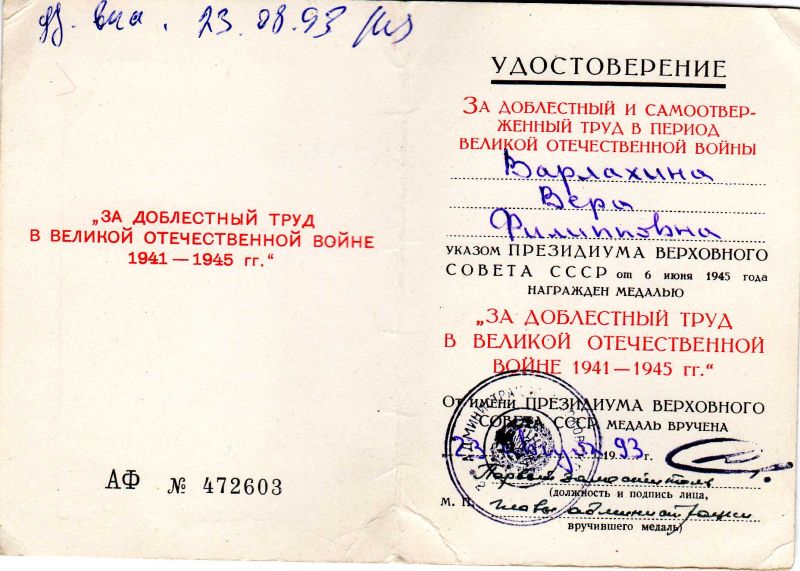 вид. 23.08.93
„ЗА ДОБЛЕСТНЫЙ ТРУД
В ВЕЛИКОЙ ОТЕЧЕСТВЕННОЙ ВОЙНЕ
1941 — 1945 гг.“
АФ № 472603
УДОСТОВЕРЕНИЕ
ЗА ДОБЛЕСТНЫЙ И САМООТВЕР-
ЖЕННЫЙ ТРУД В ПЕРИОД
ВЕЛИКОЙ ОТЕЧЕСТВЕННОЙ ВОЙНЫ
Варлахина
Вера
Филипповна
УКАЗОМ ПРЕЗИДИУМА ВЕРХОВНОГО
СОВЕТА СССР от 6 июня 1945 года
НАГРАЖДЕН МЕДАЛЬЮ
„ЗА ДОБЛЕСТНЫЙ ТРУД
В ВЕЛИКОЙ ОТЕЧЕСТВЕННОЙ
ВОЙНЕ 1941 — 1945 гг.“
От имени ПРЕЗИДИУМА ВЕРХОВНОГО
СОВЕТА СССР МЕДАЛЬ ВРУЧЕНА
23 августа 1993 г.
Первый заместитель
(должность и подпись лица,
М. П. главы администрации
вручившего медаль)